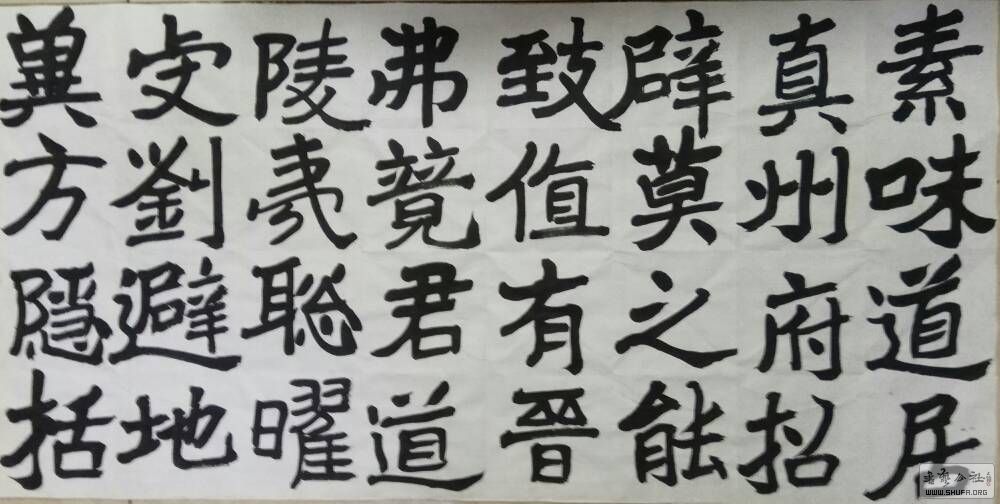 素味道居
真州府招
辟莫之能
致值有晉
弗竟君道
陵夷聡曜
虔劉避地
冀方隱括
WWW.SHUFA.ORG